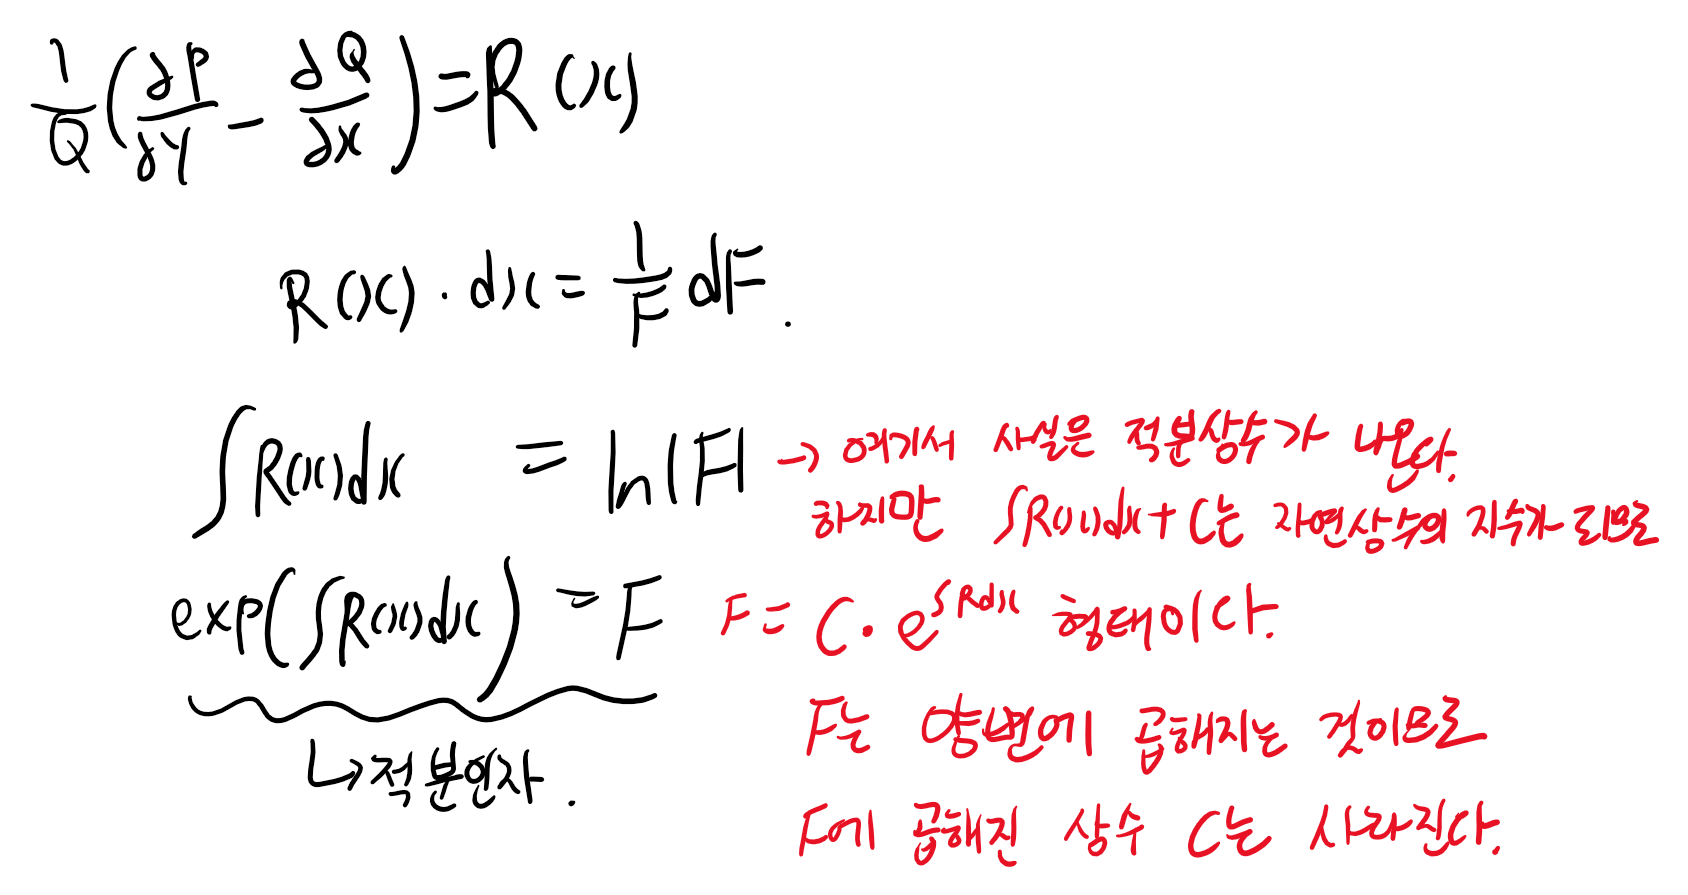 1/Q (∂P/∂y - ∂Q/∂x) = R(x)
R(x)·dx = 1/F dF.
∫R(x)dx = ln|F| → 여기서 사실은 적분상수가 나온다.
하지만 ∫R(x)dx + C는 자연상수의 지수가 되므로
exp(∫R(x)dx) = F
F = C·e^∫Rdx 형태이다.
F는 양변에 곱해지는 것이므로
↳ 적분인자.
F에 곱해진 상수 C는 사라진다.